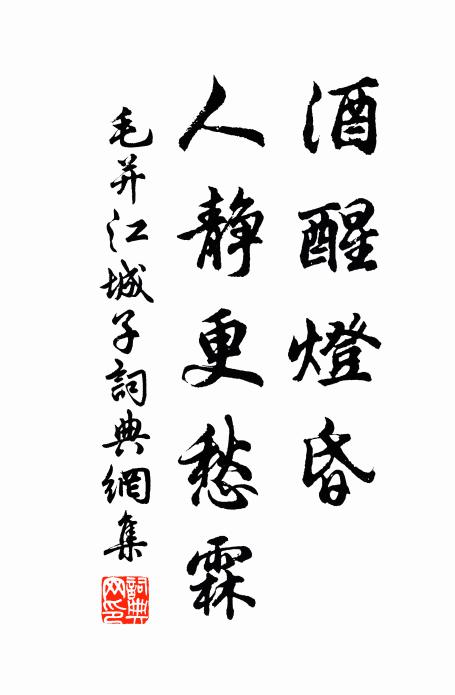 酒醒燈昏
人靜更愁霖
毛并江城子詞典網集
詞典網印